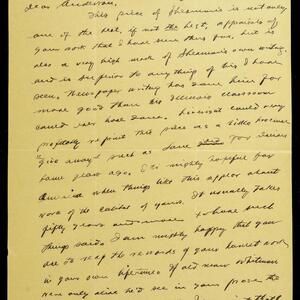 Dear Anderson,
This piece of Sherman's is not only
one of the best, if not the best, appraisals of
your work that I have seen thus far, but is
also a very high mark of Sherman's own writing,
and is superior to anything of his I have
seen. Newspaper writing has done him far
more good than his Illinois classroom
could ever have done. Liveright could very
profitably reprint this piece as a little brochure
"give away" such as Lane did for Dreiser
some years ago. I am mighty hopeful for
America when things like this appear about
work of the calibre of yours. It usually takes
fifty years and more to have such
things said. I am mighty happy that you
are to reap the rewards of your honest work
in your own lifetime. If old man Whitman
were only alive he'd see in your prose the